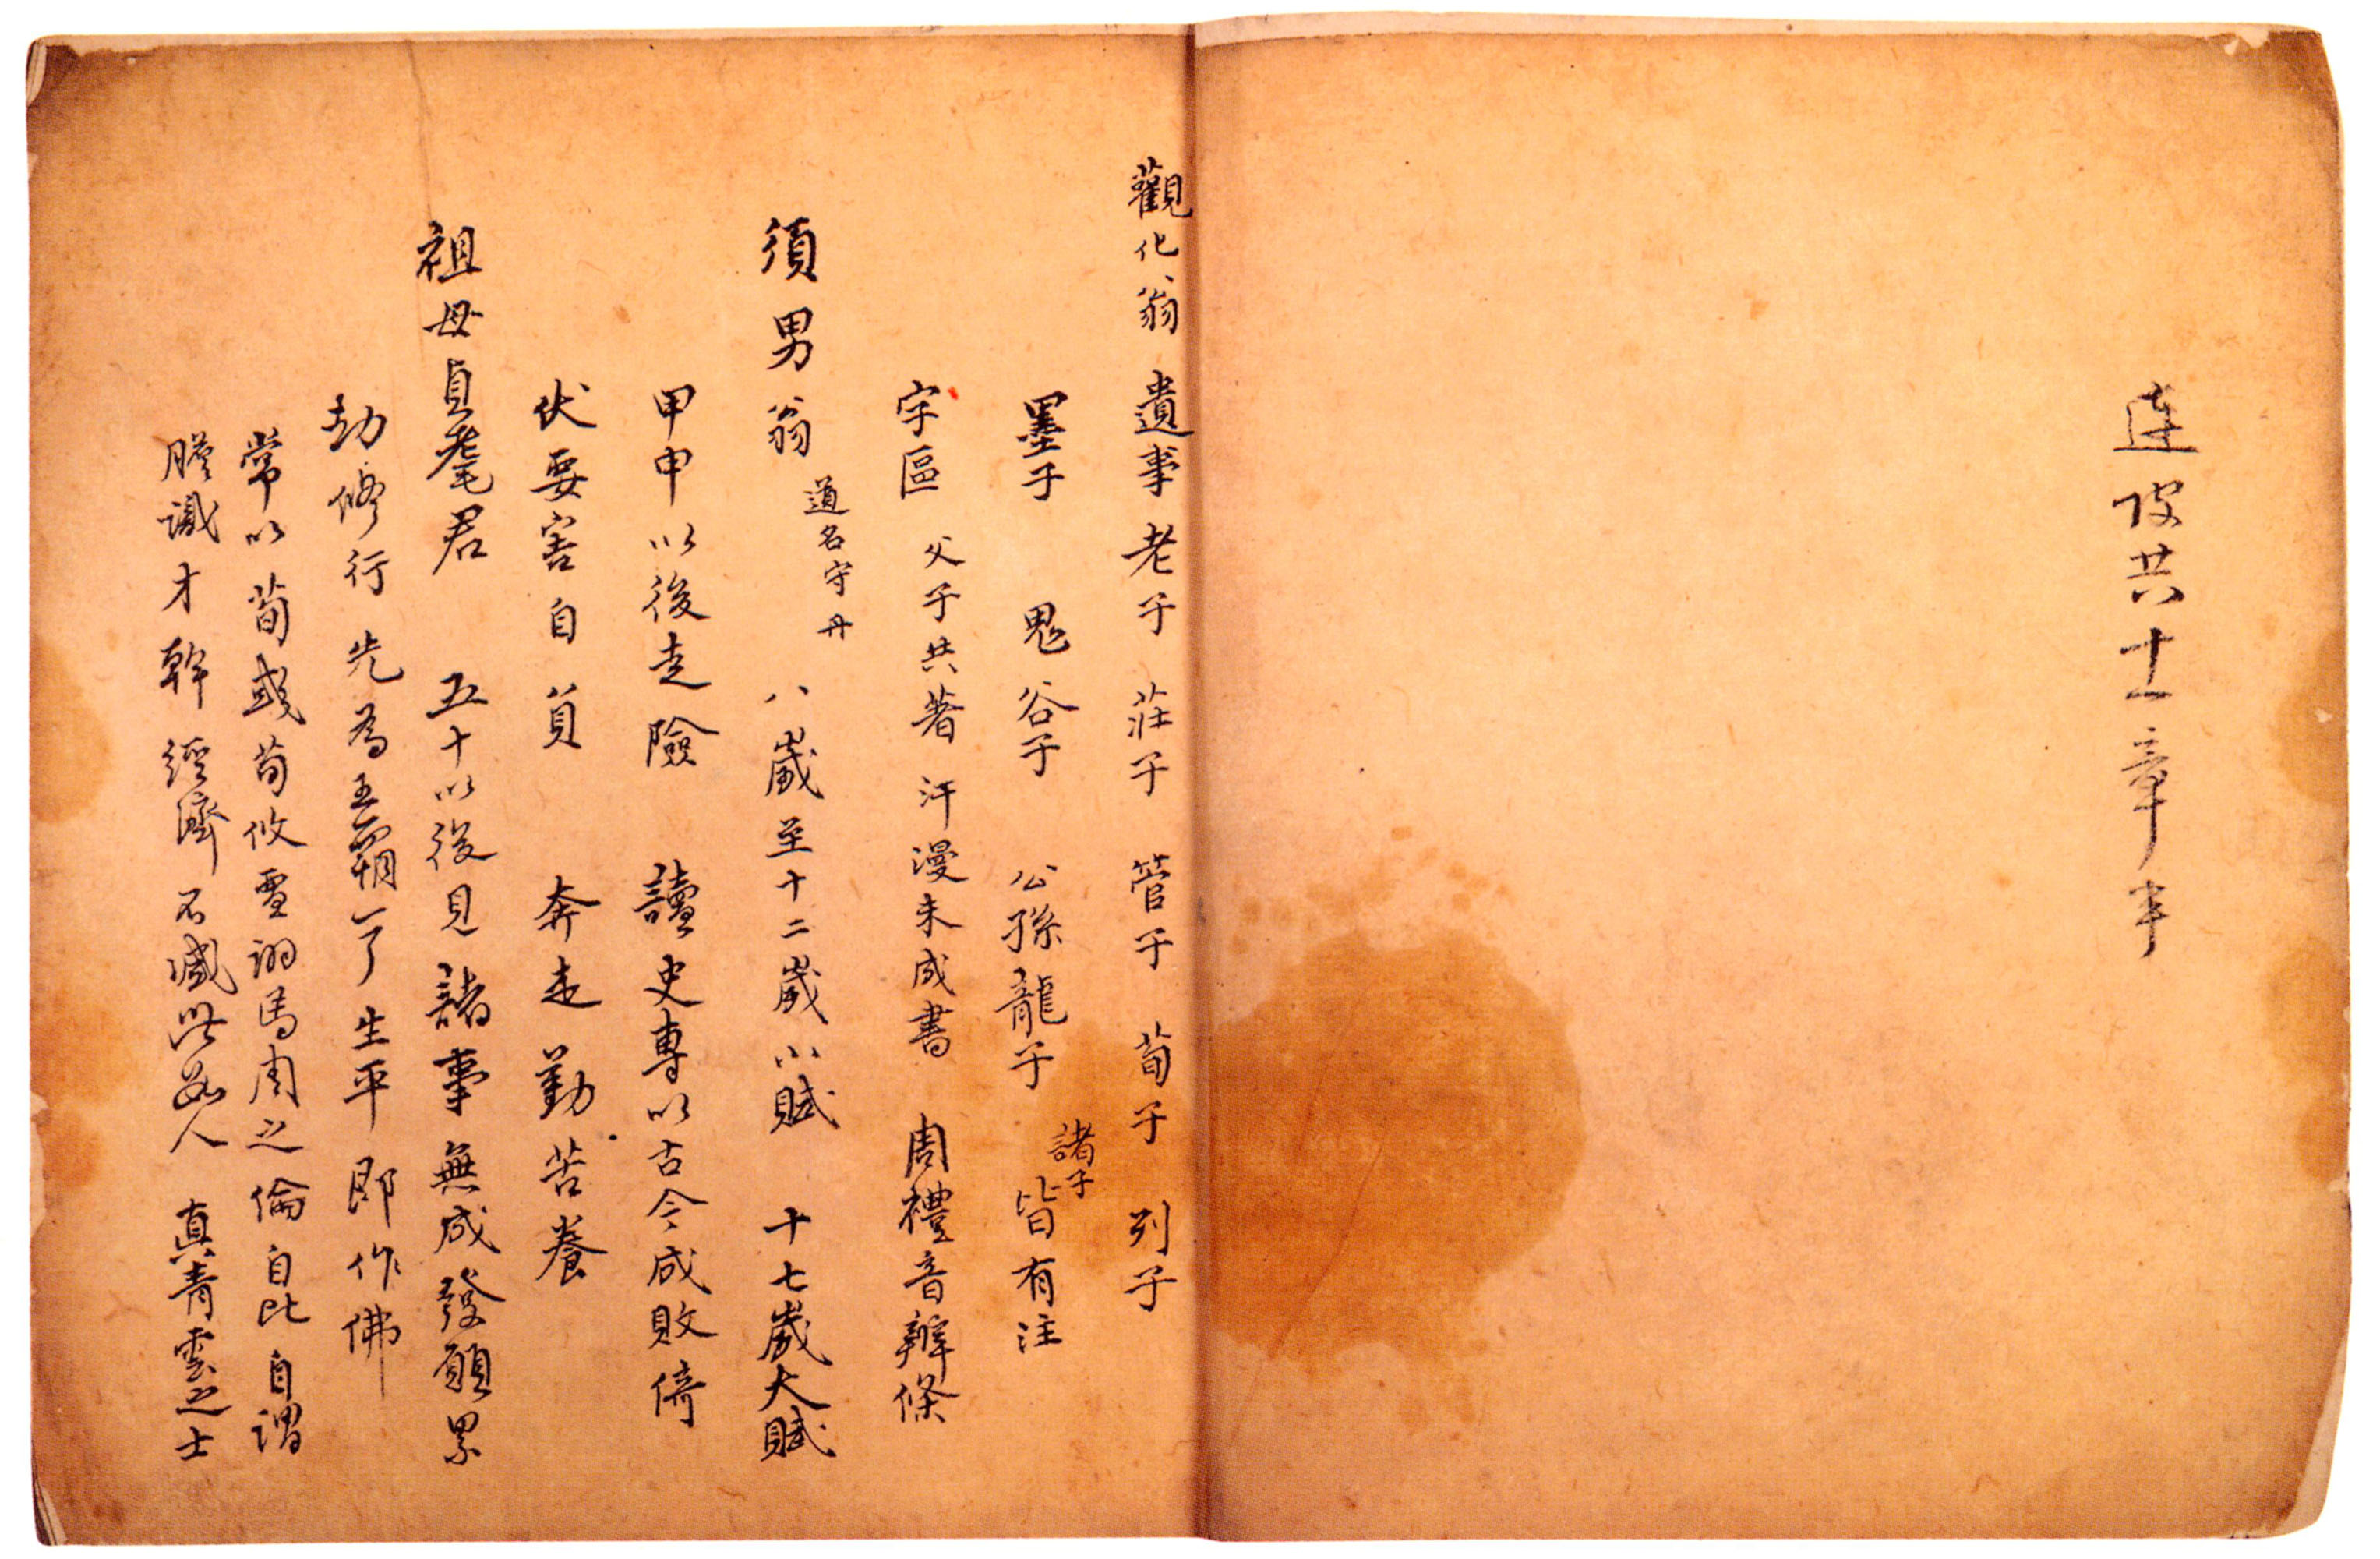 連皮共十一章半
觀化翁 遺事 老子 莊子 管子 荀子 列子
墨子 鬼谷子 公孫龍子 諸子皆有注
字區 父子共著 汗漫未成書 周禮音辨條
須男翁 道名守丹 八歲至十二歲小賦 十七歲大賦
甲申以後走險 讀史專以古今成敗倚
伏要害自負 奔走勤苦養
祖母貞耄君 五十以後見諸事無成發願累
劫修行先為五霸一了生平即作佛
常以荀彧荀攸 馬周之倫自比自謂
膽識才幹經濟不減此數人 真青雲之士